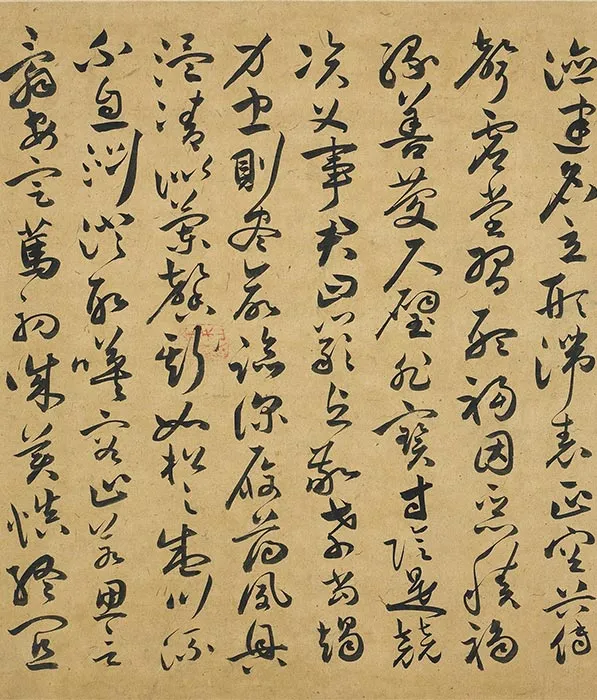 德建名立形端表正空谷傳
聲虛堂習聽禍因惡積福
緣善慶尺璧非寶寸陰是競
資父事君曰嚴與敬孝當竭
力忠則盡命臨深履薄夙興
溫清似蘭馨斯如松之盛川流
不息淵澄取暎容止若思言
辭安定篤初誠美慎終宜